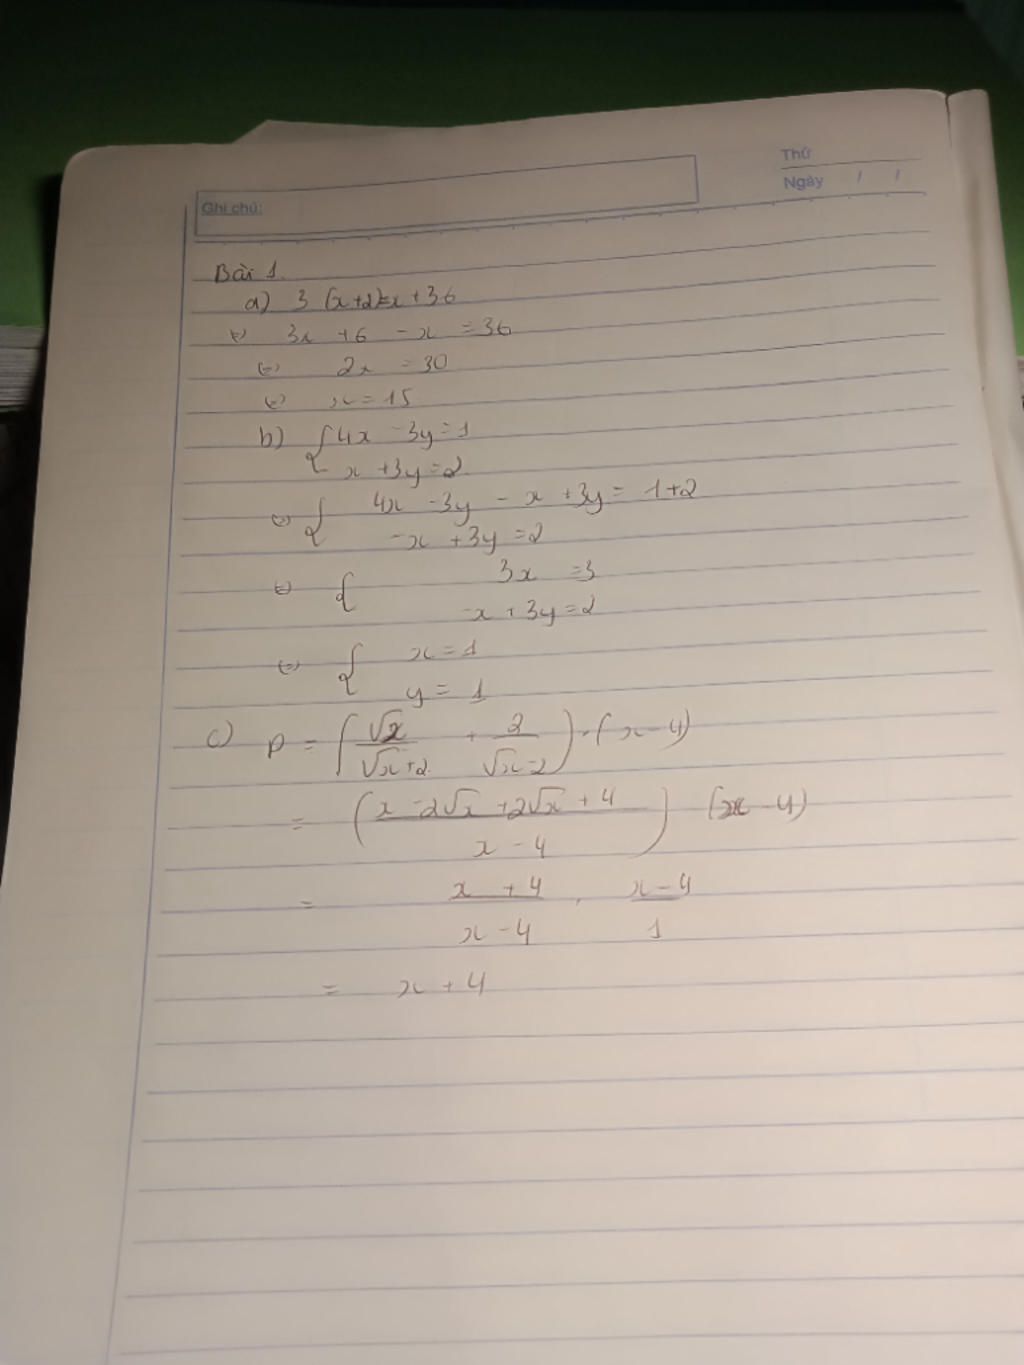 Thứ
Ngày / /
Ghi chú:
Bài 1.
a) 3 (x+2)=x +36
⇔ 3x +6 - x = 36
⇔ 2x = 30
⇔ x = 15
b) { 4x - 3y = 1
x + 3y = 2
⇔ { 4x - 3y - x + 3y = 1+2
-x + 3y = 2
⇔ { 3x = 3
-x + 3y = 2
⇔ { x = 1
y = 1
c) P = (√x/(√x+2) + 2/(√x-2)) . (x - 4)
= ((x - 2√x + 2√x + 4)/(x - 4)) (x - 4)
= (x + 4)/(x - 4) . (x - 4)/1
= x + 4